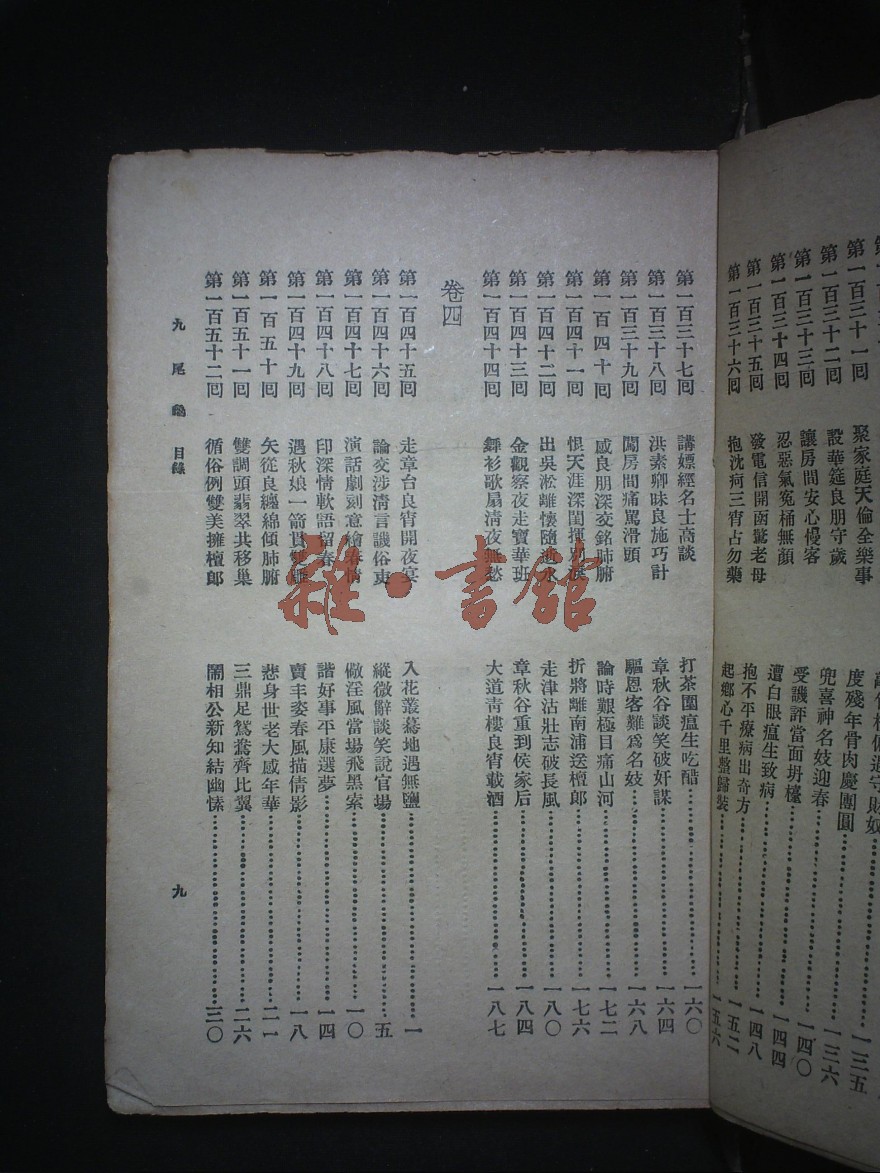 聚家庭天倫全樂事
第一百三十二回 設華筵良朋守歲 度殘年骨肉慶團圓 一三五
第一百三十三回 讓房間安心慢客 兜喜神名妓迎春 一三六
第一百三十四回 忍惡氣冤桶無顏 受譏評當面坍檯 一四〇
第一百三十五回 發電信開函驚老母 遭白眼瘟生致病 一四四
第一百三十六回 抱沈疴三宵占勿藥 抱不平療病出奇方 一四八
起鄉心千里整歸裝 一五二
一五六
第一百三十七回 講嫖經名士高談 打茶圍瘟生吃醋 一六〇
第一百三十八回 洪素卿昧良施巧計 章秋谷談笑破奸謀 一六四
第一百三十九回 鬧房間痛罵滑頭 驅恩客難爲名妓 一六八
第一百四十回 感良朋深交銘肺腑 論時艱極目痛山河 一七二
第一百四十一回 恨天涯深閨揮別淚 折將離南浦送檀郎 一七六
第一百四十二回 出吳淞離懷隨逝水 走津沽壯志破長風 一八〇
第一百四十三回 金觀察夜走寶華班 章秋谷重到侯家后 一八四
第一百四十四回 舞衫歌扇清夜無愁 大道青樓良宵載酒 一八七
卷四
第一百四十五回 走章台良宵開夜宴 入花叢驀地遇無鹽 一
第一百四十六回 論交涉清言譏俗吏 縱微辭談笑說官場 五
第一百四十七回 演話劇刻意繪春情 儆淫風當場飛黑索 一〇
第一百四十八回 印深情軟語留春 諧好事平康選夢 一四
第一百四十九回 遇秋娘一箭貫雙雕 賣丰姿春風描倩影 一八
第一百五十回 矢從良纏綿傾肺腑 悲身世老大感年華 二一
第一百五十一回 雙調頭翡翠共移巢 三鼎足鴛鴦齊比翼 二六
第一百五十二回 循俗例雙美擁檀郎 鬧相公新知結幽愫 三〇
九尾龜 目錄 九
雜·書館